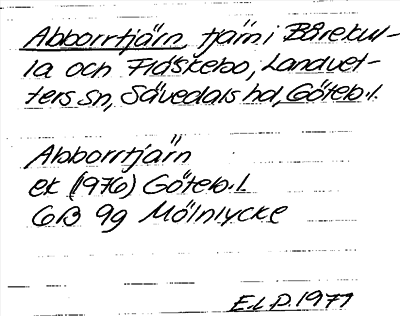 Abborrtjärn, tjärn i Bårekul-
la och Fläskebo, Landvet-
ters sn, Sävedals hd, Göteb. l.
Abborrtjärn
ek (1976) Göteb. l.
6B 9g Mölnlycke
E.L.P. 1971